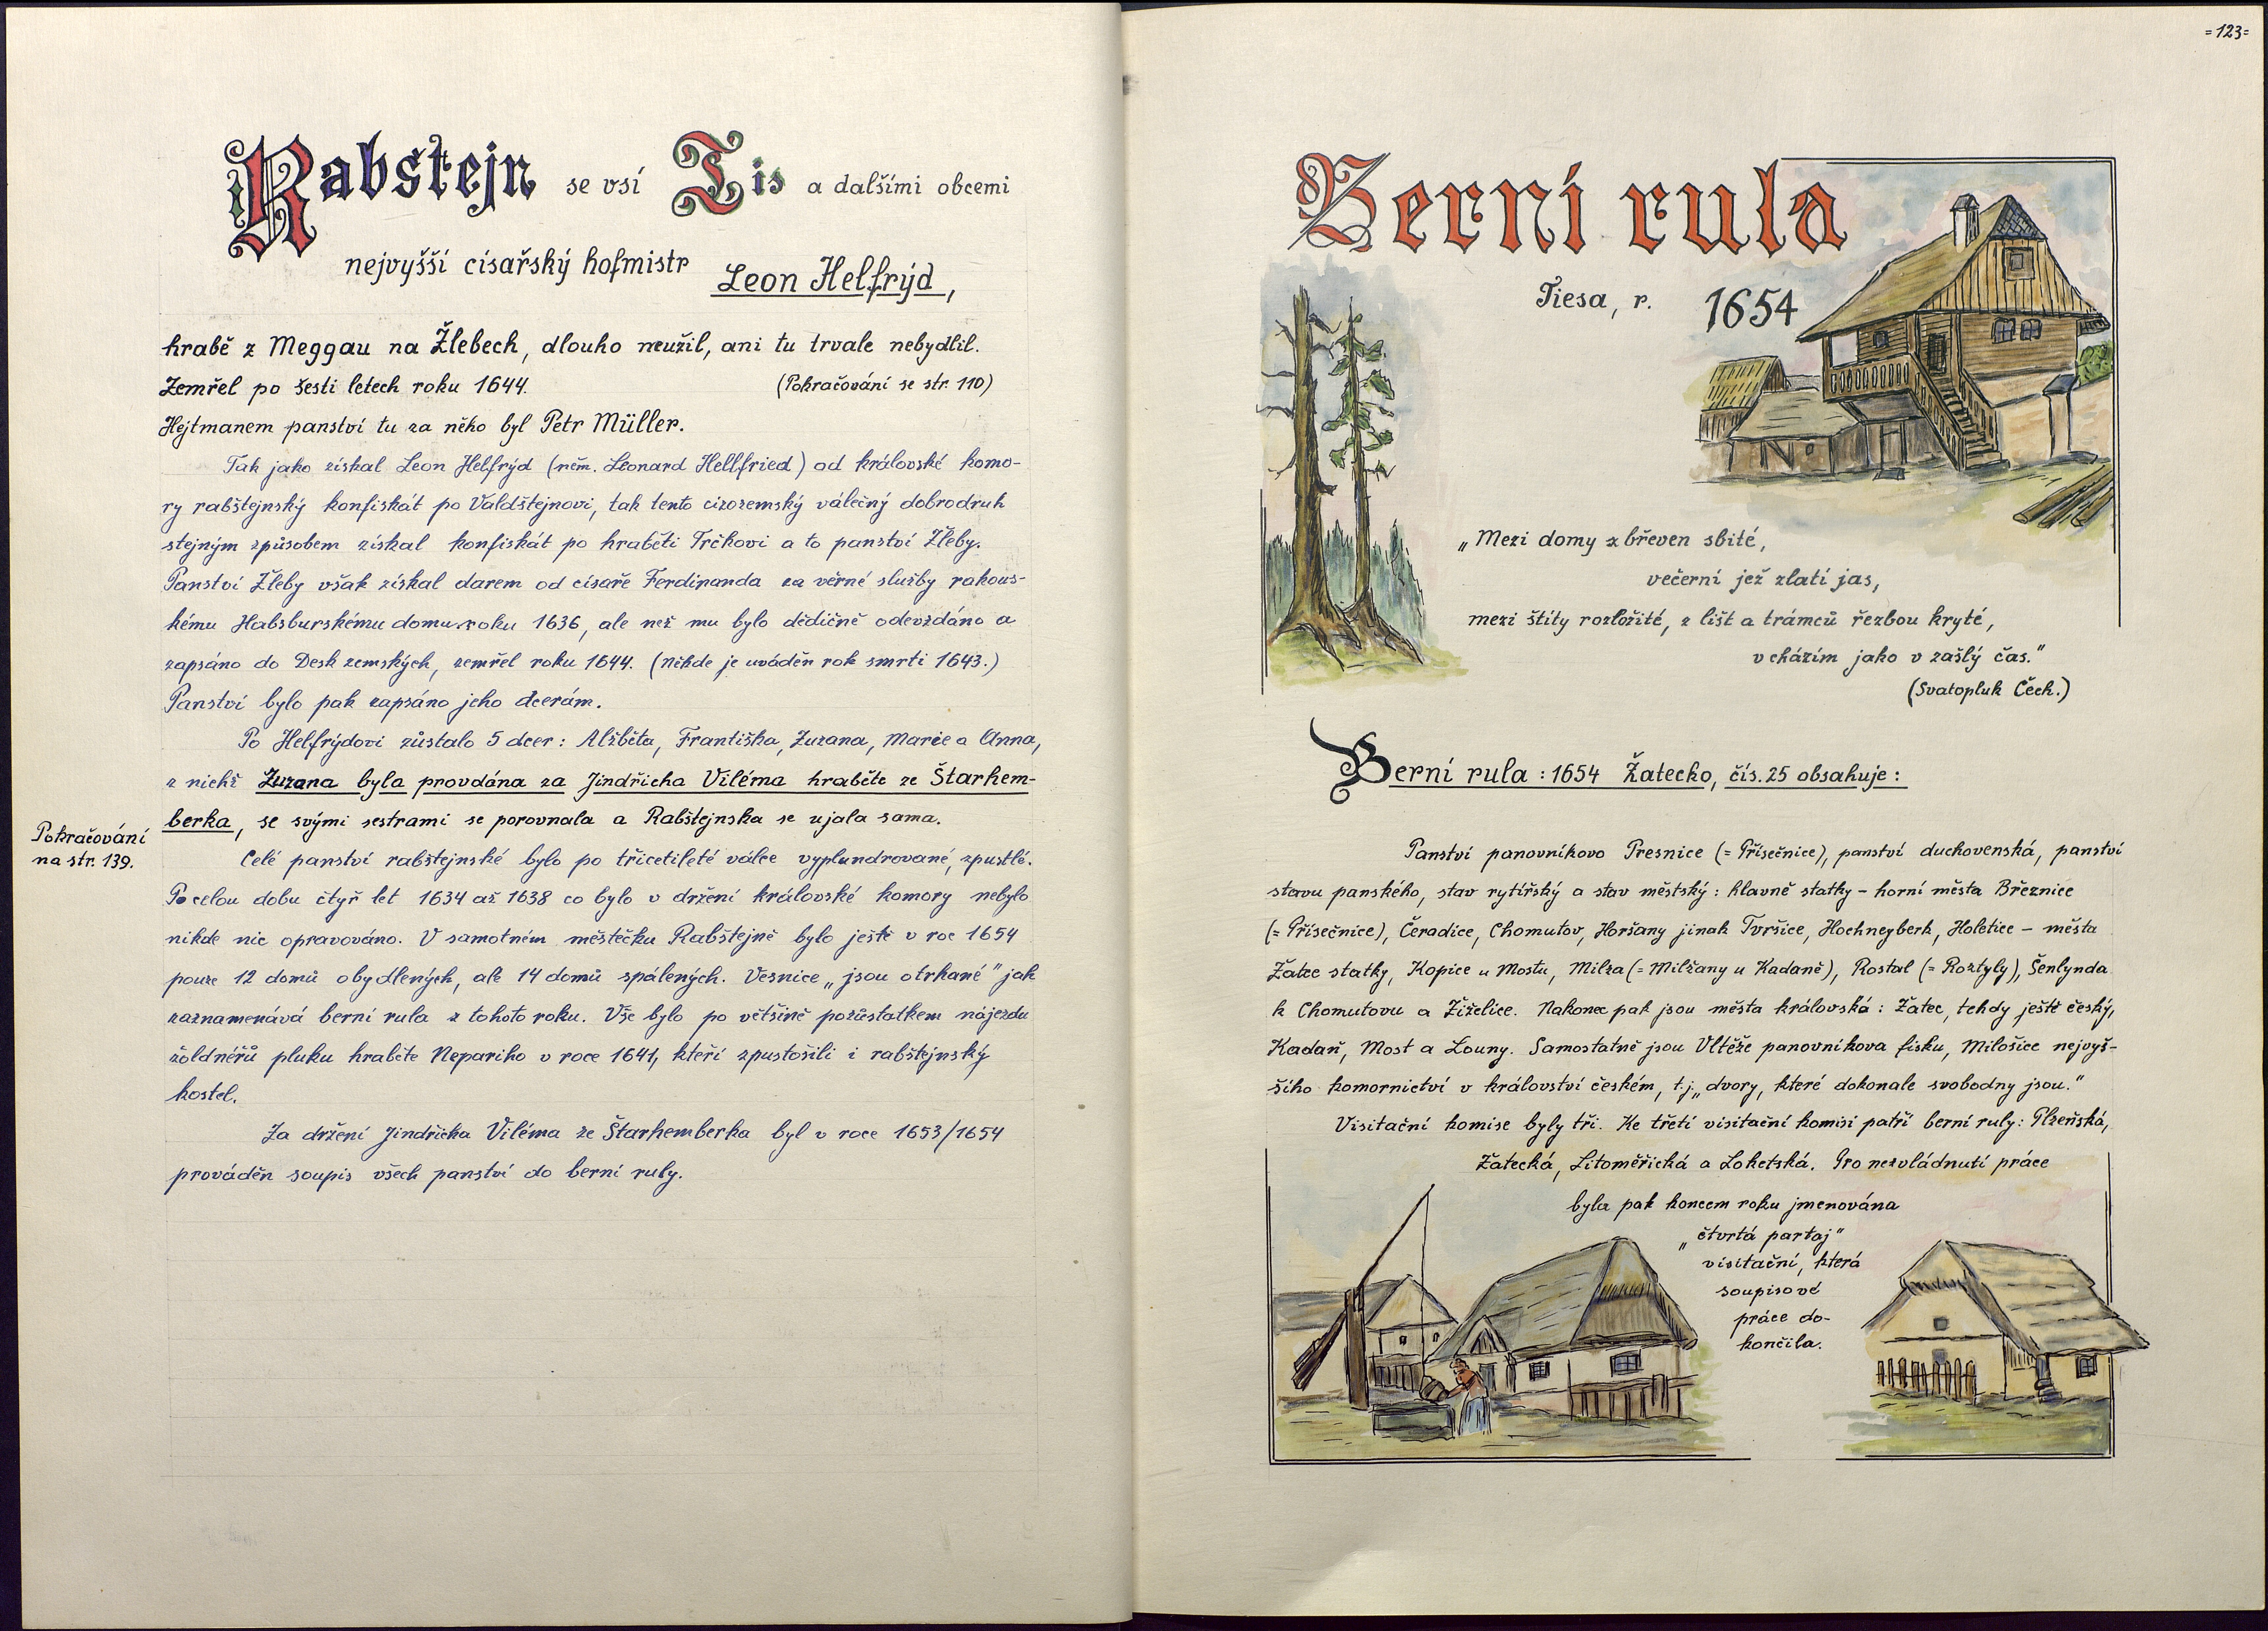 Rabštejn se vsí Tis a dalšími obcemi
nejvyšší císařský hofmistr Leon Helfrýd,
hrabě z Meggau na Žlebech, dlouho neužil, ani tu trvale nebydlil.
Zemřel po šesti letech roku 1644. (Pokračování se str. 110)
Hejtmanem panství tu za něho byl Petr Müller.
Tak jako získal Leon Helfrýd (něm. Leonard Hellfried) od královské komo-
ry rabštejnský konfiskát po Valdštejnovi, tak tento cizozemský válečný dobrodruh
stejným způsobem získal konfiskát po hraběti Trčkovi a to panství Žleby.
Panství Žleby však získal darem od císaře Ferdinanda za věrné služby rakous-
kému Habsburskému domu roku 1636, ale než mu bylo dědičně odevzdáno a
zapsáno do Desk zemských, zemřel roku 1644. (Někde je uváděn rok smrti 1643.)
Panství bylo pak zapsáno jeho dcerám.
Po Helfrýdovi zůstalo 5 dcer: Alžběta, Františka, Zuzana, Marie a Anna,
z nichž Zuzana byla provdána za Jindřicha Viléma hraběte ze Štarhem-
berka, se svými sestrami se porovnala a Rabštejnska se ujala sama.
Pokračování
na str. 139.
Celé panství rabštejnské bylo po třicetileté válce vyplundrované, zpustlé.
Po celou dobu čtyř let 1634 až 1638 co bylo v držení královské komory nebylo
nikde nic opravováno. V samotném městečku Rabštejně bylo ještě v roce 1654
pouze 12 domů obydlených, ale 14 domů spálených. Vesnice „jsou otrkané" jak
zaznamenává berní rula z tohoto roku. Vše bylo po většině pozůstatkem nájezdu
žoldnéřů pluku hraběte Nepariho v roce 1641, kteří zpustošili i rabštejnský
kostel.
Za držení Jindřicha Viléma ze Štarhemberka byl v roce 1653/1654
prováděn soupis všech panství do berní ruly.
=123=
Berní rula
Tiesa, r. 1654
„Mezi domy z břeven sbité,
večerní jež zlatí jas,
mezi štíty rozložité, z lišt a trámců řezbou kryté,
vcházím jako v zašlý čas."
(Svatopluk Čech.)
Berní rula : 1654 Žatecko, čís. 25 obsahuje :
Panství panovníkovo Presnice (= Přísečnice), panství duchovenská, panství
stavu panského, stav rytířský a stav městský : hlavně statky – horní města Březnice
(= Přísečnice), Čeradice, Chomutov, Horšany jinak Tvršice, Hochneyberk, Holetice – města
Žatec statky, Kopice u Mostu, Milza (= Milžany u Kadaně), Rostal (= Roztyly), Šenlynda
k Chomutovu a Žiželice. Nakonec pak jsou města královská : Žatec, tehdy ještě český,
Kadaň, Most a Louny. Samostatně jsou Vltěže panovníkova fisku, Milošice nejvyš-
šího komornictví v království českém, t.j. „dvory, které dokonale svobodny jsou."
Visitační komise byly tři. Ke třetí visitační komisi patří berní ruly : Plzeňská,
Žatecká, Litoměřická a Loketská. Pro nezvládnutí práce
byla pak koncem roku jmenována
„čtvrtá partaj"
visitační, která
soupisové
práce do-
končila.